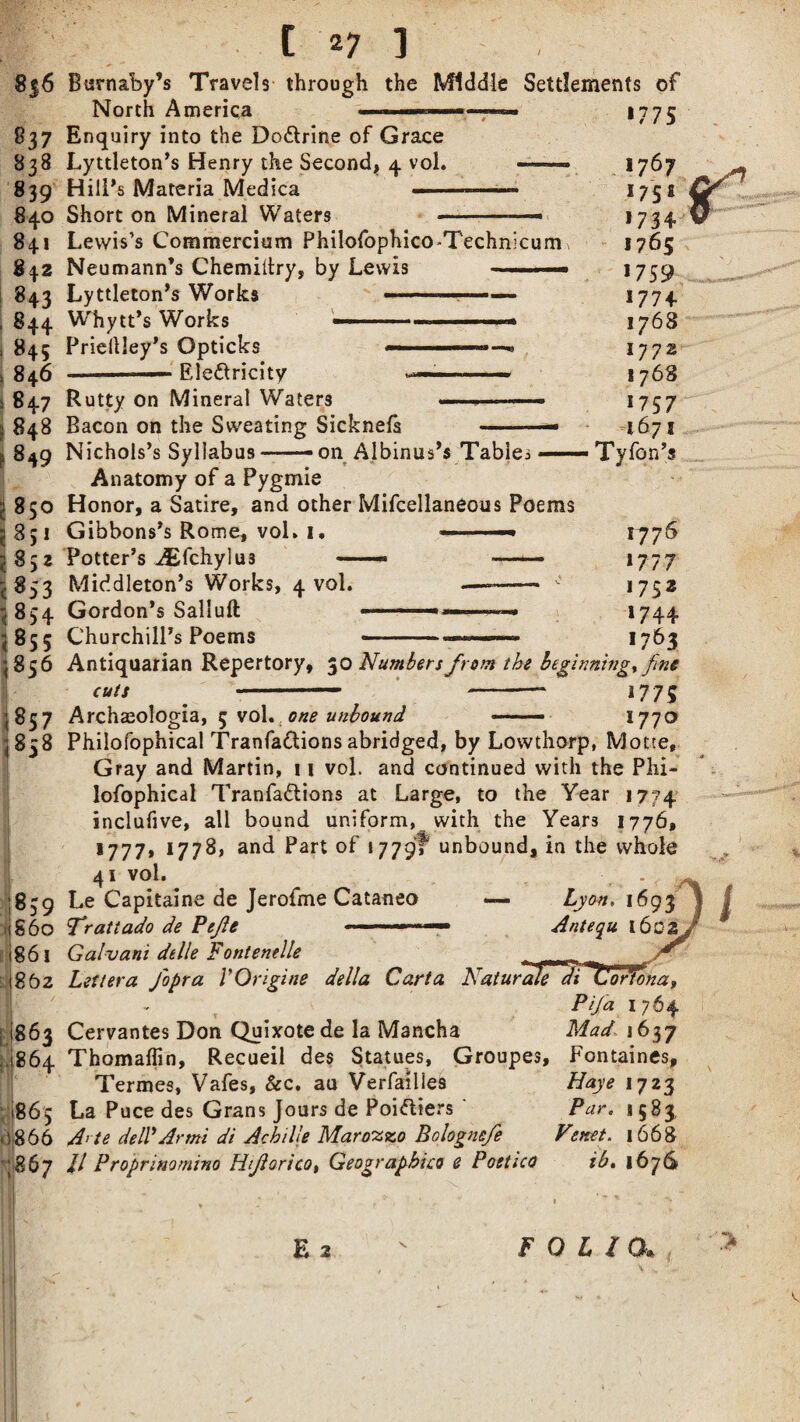 [ 27 ]
836 Burnaby's Travels through the Middle Settlements of
North America ——— 1775
837 Enquiry into the Doctrine of Grace
838 Lyttleton's Henry the Second, 4 vol. —— 1767
839 Hill's Materia Medica ——— 1751
840 Short on Mineral Waters ——— 1734
841 Lewis's Commercium Philoſophico-Technicum 1765
842 Neumann's Chemiſtry, by Lewis ——— 1759
843 Lyttleton's Works ——— 1774
844 Whytt's Works ——— 1768
845 Prieſtley's Opticks ——— 1772
846 ——— Electricity ——— 1768
847 Rutty on Mineral Waters ——— 1757
848 Bacon on the Sweating Sickneſs ——— 1671
849 Nichols's Syllabus —— on Albinus's Tables —— Tyſon's
Anatomy of a Pygmie
850 Honor, a Satire, and other Miſcellaneous Poems
851 Gibbons's Rome, vol. 1. ——— 1776
852 Potter's Æſchylus —— —— 1777
853 Middleton's Works, 4 vol. ——— 1752
854 Gordon's Salluſt ——— 1744
855 Churchill's Poems ——— 1763
856 Antiquarian Repertory, 30 Numbers from the beginning, fine
cuts ——— ——— 1775
857 Archæologia, 5 vol. one unbound —— 1770
858 Philoſophical Tranſactions abridged, by Lowthorp, Motte,
Gray and Martin, 11 vol. and continued with the Phi-
loſophical Tranſactions at Large, to the Year 1774
incluſive, all bound uniform, with the Years 1776,
1777, 1778, and Part of 1779 unbound, in the whole
41 vol.
859 Le Capitaine de Jeroſme Cataneo — Lyon. 1693
860 Trattado de Peſte ——— Antequ 1602
861 Galvani delle Fontenelle
862 Lettera ſopra l'Origine della Carta Naturale di Cortona,
Piſa 1764
863 Cervantes Don Quixote de la Mancha Mad. 1637
864 Thomaſſin, Recueil des Statues, Groupes, Fontaines,
Termes, Vaſes, &c. au Verſailles Haye 1723
865 La Puce des Grans Jours de Poictiers Par. 1583
866 Arte dell' Armi di Achille Marozzo Bologneſe Venet. 1668
867 Il Proprinomino Hiſtorico, Geographico e Poetico ib. 1676
E 2 FOLIO.